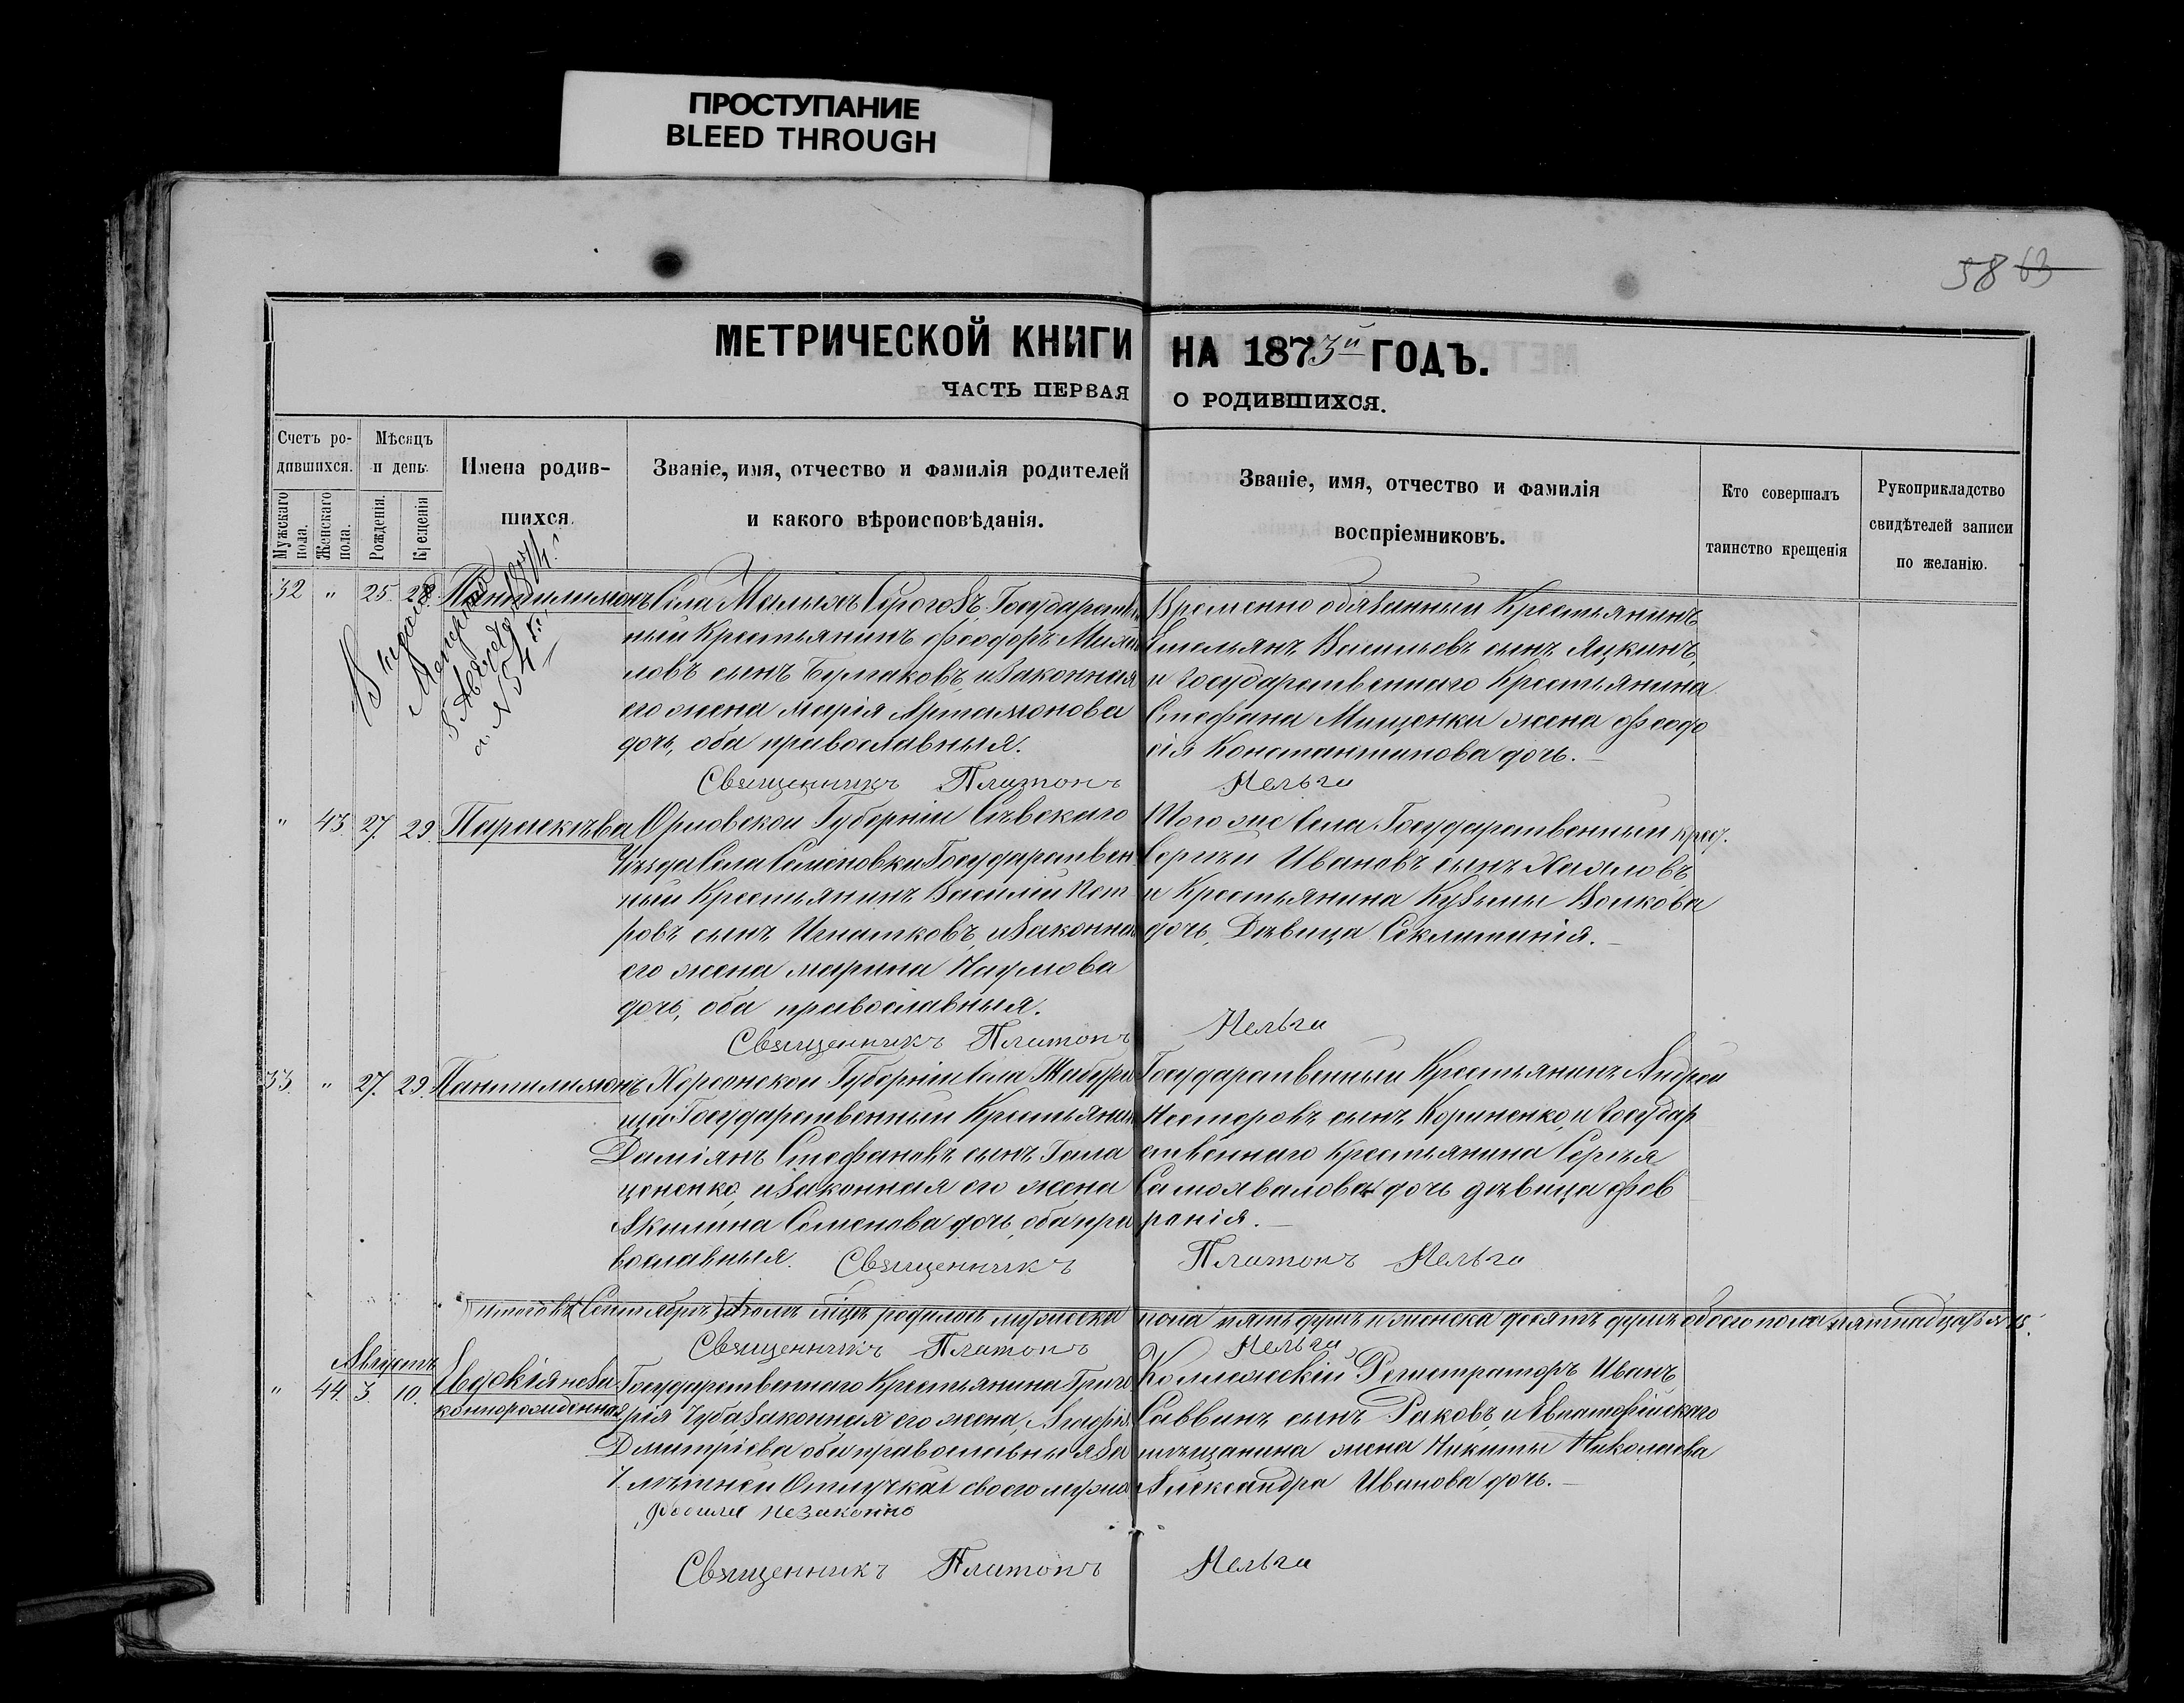 ПРОСТУПАНИЕ
BLEED THROUGH
58 63
МЕТРИЧЕСКОЙ КНИГИ НА 1873й ГОДЪ.
ЧАСТЬ ПЕРВАЯ О РОДИВШИХСЯ.
Счетъ родившихся.
Мужскаго пола.
Женскаго пола.
Мѣсяцъ и день.
Рожденія.
Крещенія
Имена родившихся.
Званіе, имя, отчество и фамилія родителей
и какого вѣроисповѣданія.
Званіе, имя, отчество и фамилія
воспріемниковъ.
Кто совершалъ
таинство крещенія
Рукоприкладство
свидѣтелей записи
по желанію.
32 " 25. 28. Пантилимонъ
Села Малыхъ Серогозъ Государствен
ный Крестьянинъ Феодоръ Михаи
ловъ сынъ Бурлаковъ, и законная
его жена Марія Артамонова
дочь, оба православныя.
Временно обязанный Крестьянинъ
Емельянъ Васильевъ сынъ Яцкинъ,
и Государственнаго Крестьянина
Стефана Мищенки жена Феодо
сія Константинова дочь.
Священникъ Платонъ Мельги
" 43. 27. 29. Параскѣва
Орловской Губерніи Сѣвскаго
Уѣзда Села Семеновки Государствен
ный Крестьянинъ Василій Пет
ровъ сынъ Игнатковъ, и законная
его жена Марина Наумова
дочь, оба православныя.
Того же Села Государственный крес.
Сергѣй Ивановъ сынъ Халловъ
и Крестьянина Кузьмы Волкова
дочь, Дѣвица Секлитикія.
Священникъ Платонъ Мельги
33. " 27. 29. Пантилимонъ
Херсонской Губерніи Села Жабури
ща Государственный Крестьянинъ
Даміянъ Стефановъ сынъ Гала
ценко, и законная его жена
Акилина Семенова дочь, оба пра
вославныя.
Государственный Крестьянинъ Андрей
Нестеровъ сынъ Корниенко, и Государ
ственнаго Крестьянина Сергѣя
Самохвалова дочь дѣвица Фев
ронія.
Священникъ Платонъ Мельги
Итого въ (Сентябрѣ) Іюлѣ м-цѣ родилось мужеска пола пять душъ и женска десять душъ обоего пола пятнадцать № 15.
Священникъ Платонъ Мельги
Августъ
" 44. 3. 10. Евдокія неза
коннорожденная
Государственнаго Крестьянина Григо
рія Чуба законная его жена, Агафія
Дмитріева оба православныя за
7. лѣтней Отлучкой своего мужа
родила незаконно
Коллежскій Регистраторъ Иванъ
Саввинъ сынъ Раковъ, и Евпаторійскаго
мѣщанина жена Никиты Николаева
Александра Иванова дочь.
Священникъ Платонъ Мельги